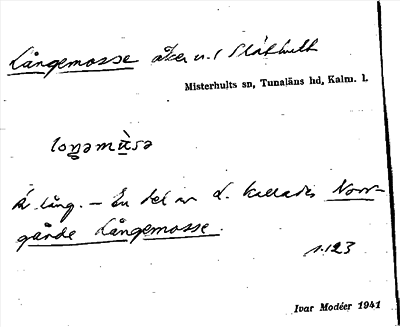 Långemosse åker u. / Slåthult
Misterhults sn, Tunaläns hd, Kalm. l.
loŋəmùsə
Är lång. – En del av L. kallades Norr-
gärde Långemosse.
s. 123
Ivar Modéer 1941